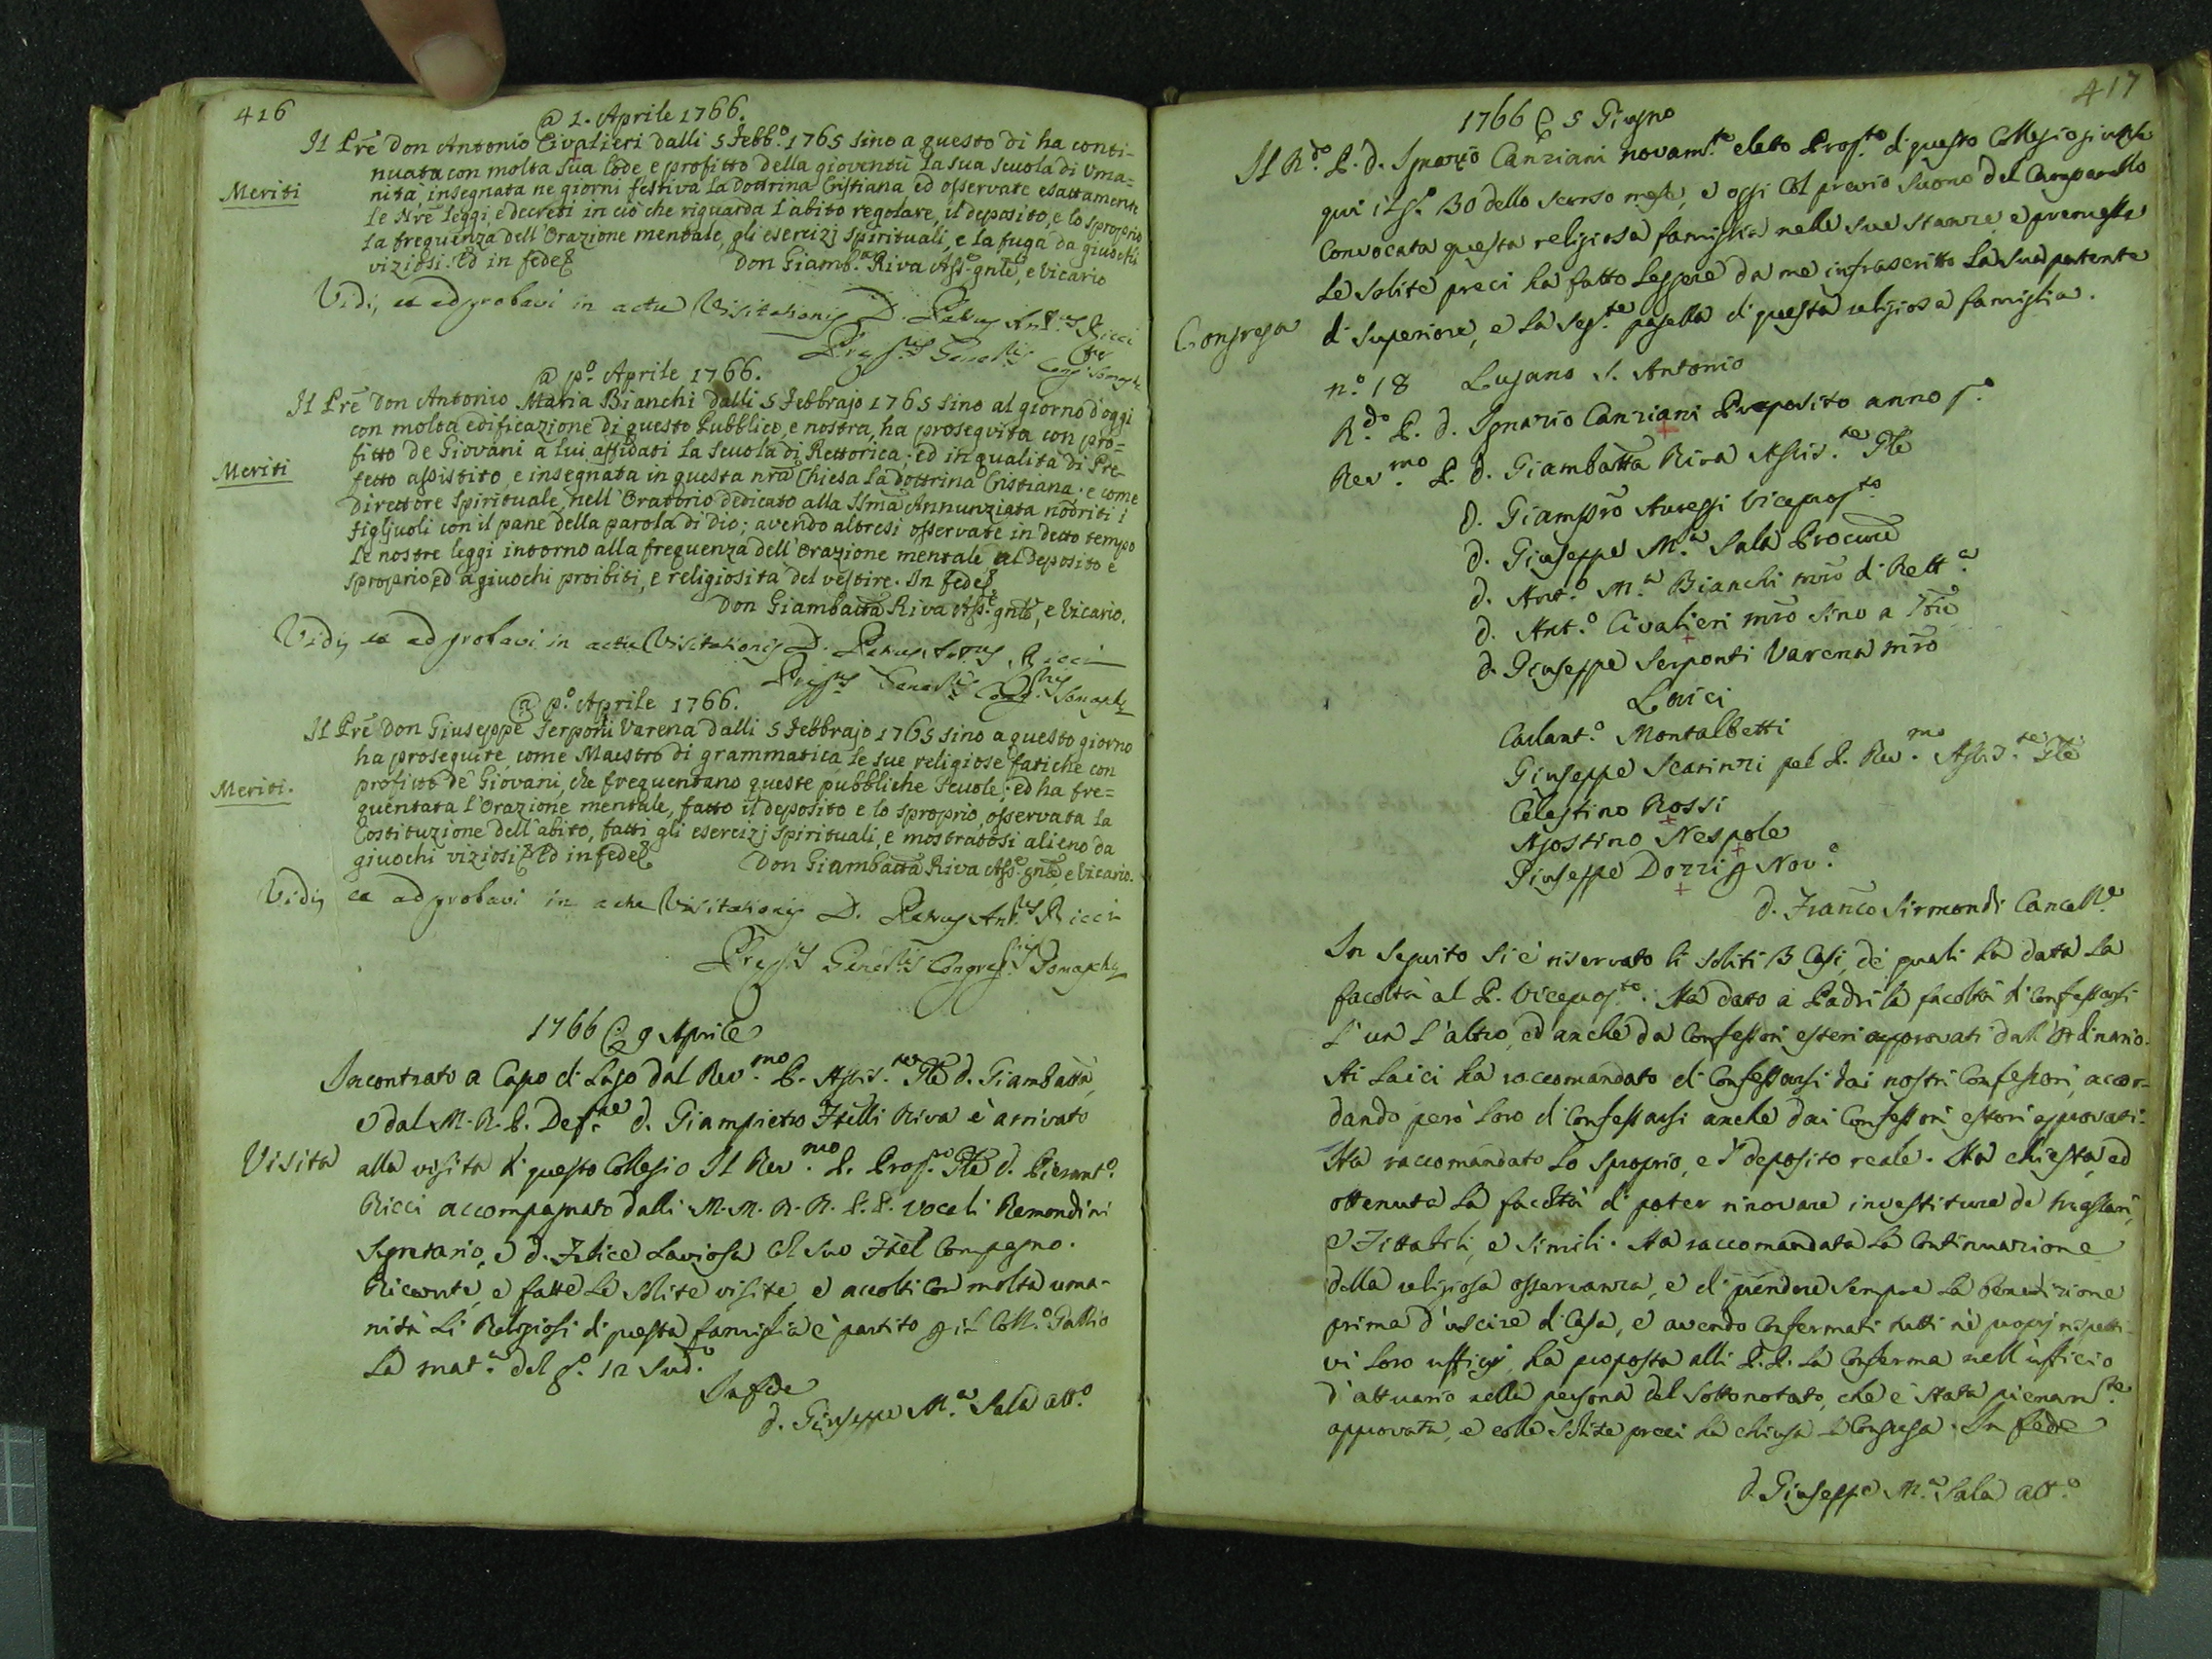 416
@ 1. Aprile 1766.
Il Prē Don Antonio Civalieri dalli 5 Febb.º 1765 sino a questo di ha conti-
nuata con molta sua lode, e profitto della gioventù la sua scuola di Uma=
Meriti
nità, insegnata ne giorni festiva la dottrina Cristiana ed osservate esattamente
le Nrē leggi, e decreti in ciò che riguarda l'abito regolare, il deposito, e lo sproprio
la frequenza dell'Orazione mentale, gli esercizj spirituali, e la fuga da giuochi
viziosi. Ed in fede
Don Giamb.ª Riva Ass.e gnlē, e Vicario
Vidi, et adprobavi in actu Visitationis D. Petrus Ant.us Ricci
Prep.tus Gener.lis Cong. Somaschę
@ pº. Aprile 1766.
Il Prē Don Antonio Maria Bianchi dalli 5 Febbrajo 1765 sino al giorno d'oggi
con molta edificazione di questo Pubblico, e nostra, ha proseguita con pro=
fitto de Giovani a lui affidati la Scuola di Rettorica; ed in qualità di Pre
Meriti
fetto assistito, e insegnata in questa nrā Chiesa la dottrina Cristiana; e come
Direttore Spirituale nell'Oratorio dedicato alla SSmā Annunziata nodriti i
Figljuoli con il pane della parola di Dio; avendo altresì osservate in detto tempo
le nostre leggi intorno alla frequenza dell'Orazione mentale al Deposito e
sproprio, ed a giuochi proibiti, e religiosità del vestire. In fede
Don Giambattā Riva Ass.e gnlē, e Vicario.
Vidi, et adprobavi in actu Visitationis D. Petrus Ant.us Ricci
Prep.tus Gener.lis Cong.nis Somaschę
@ pº. Aprile 1766.
Il Prē Don Giuseppe Serponti Varena dalli 5 Febbrajo 1765 sino a questo giorno
ha proseguite come Maestro di grammatica le sue religiose fatiche con
profitto de' Giovani, che frequentano queste pubbliche Scuole; ed ha fre=
Meriti.
quentata l'Orazione mentale, fatto il deposito e lo sproprio, osservata la
Costituzione dell'abito, fatti gli esercizj spirituali, e mostratosi alieno da
giuochi viziosi. Ed in fede
Don Giambattā Riva Ass.e gnlē, e Vicario.
Vidi, et adprobavi in actu Visitationis D. Petrus Ant.us Ricci
Prep.tus Gener.lis Congreg.nis Somaschę
1766 @ 9 Aprile
Incontrato a Capo di Lago dal Rev.mo P. Assis.te Glē d. Giambattā,
e dal M. R. P. Def.re d. Giampietro Ftelli Riva è arrivato
Visita
alla visita di questo Collegio Il Rev.mo P. Prop.to Glē d. Pierant.º
Ricci accompagnato dalli M. M. R. R. P. P. Vocali Remondini
Sgretario, e d. Felice Laviosa col suo Ftel Compagno.
Ricevute, e fatte le solite visite e accolti con molta uma-
nità li Religiosi di questa famiglia è partito p il Coll.º Gallio
la mat.ª del g.º 12 Sud.º
In fede
d. Giuseppe M.ª Sala att.º
417
1766 @ 5 Giugno
Il R.do P. d. Ignazio Canziani novam.te eletto Prop.to di questo Collegio giunse
qui il g.º 30 dello scorso mese, e oggi col previo suono del Campanello
Convocata questa religiosa famiglia nelle sue stanze, e premesse
le solite preci ha fatto leggere da me infrascritto la sua patente
Congrega
di Superiore, e la seg.te pagella di questa religiosa famiglia.
n.º 18 Lugano S. Antonio
R.do P. d. Ignazio Canziani Preposito anno p.º
Rev.mo P. d. Giambattā Riva Assis.te Glē
d. Giamprō Aureggi Viceprop.to
d. Giuseppe M.ª Sala Procurē
d. Ant.º M.ª Bianchi mrō di Rett.ª
d. Ant.º Civalieri mrō sino a
d. Giuseppe Serponti Varena mrō
Laici
Carlant.º Montalbetti
Giuseppe Scarinzi pel P. Rev.mo Assis.te Glē
Celestino Rossi
Agostino Nespole
Giuseppe Dozzi p Nov.º
d. Franco Sirmondi Cancell.e
In seguito si è riservato li soliti 13 Casi, de' quali ha data la
facoltà al P. Viceprop.to. Ha dato a Padri la facoltà di confessarsi
l'un l'altro, ed anche da Confessori esteri approvati dall'Ordinario.
Ai Laici ha raccomandato di confessarsi dai nostri Confessori, accor-
dando però loro di confessarsi anche dai Confessori esteri approvati.
Ha raccomandato lo sproprio, e 'l deposito reale. Ha chiesta, ed
ottenuta la facoltà di poter rinovare investiture de' livellari,
e Fittabili, e simili. Ha raccomandata la Continuazione
della religiosa osservanza, e di prendere sempre la benedizione
prima d'uscire di Casa, e avendo Confermati tutti nè proprj rispetti-
vi loro uffizj, ha proposta alli P. P. la Conferma nell'ufficio
d'attuario nella persona del sottonotato, che è stata pienam.te
approvata, e colle solite preci ha chiusa la Congrega. In fede
d. Giuseppe M.ª Sala att.º